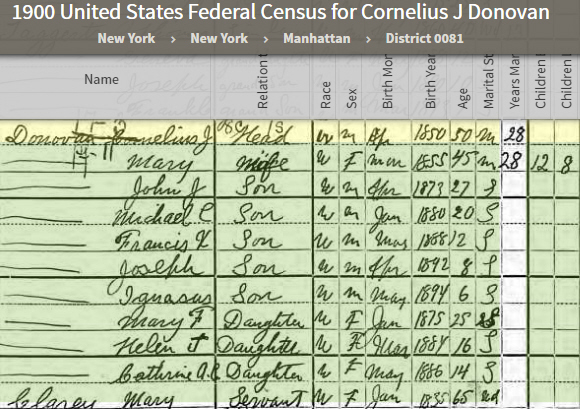 1900 United States Federal Census for Cornelius J Donovan
New York › New York › Manhattan › District 0081
Name Relation t Race Sex Birth Mon Birth Year Age Marital St Years Mar Children Children
Donovan Cornelius J Head W M Apr 1850 50 M 28
Mary Wife W F Mar 1855 45 M 28 12 8
John J Son W M Apr 1873 27 S
Michael C Son W M Jan 1880 20 S
Francis X Son W M Mar 1888 12 S
Joseph Son W M Apr 1892 8 S
Ignasus Son W M May 1894 6 S
Mary F Daughter W F Jan 1875 25 S
Helen J Daughter W F Mar 1884 16 S
Cathrine A Daughter W F May 1886 14 S
Clarey Mary Servant W F Jan 1835 65 Wd